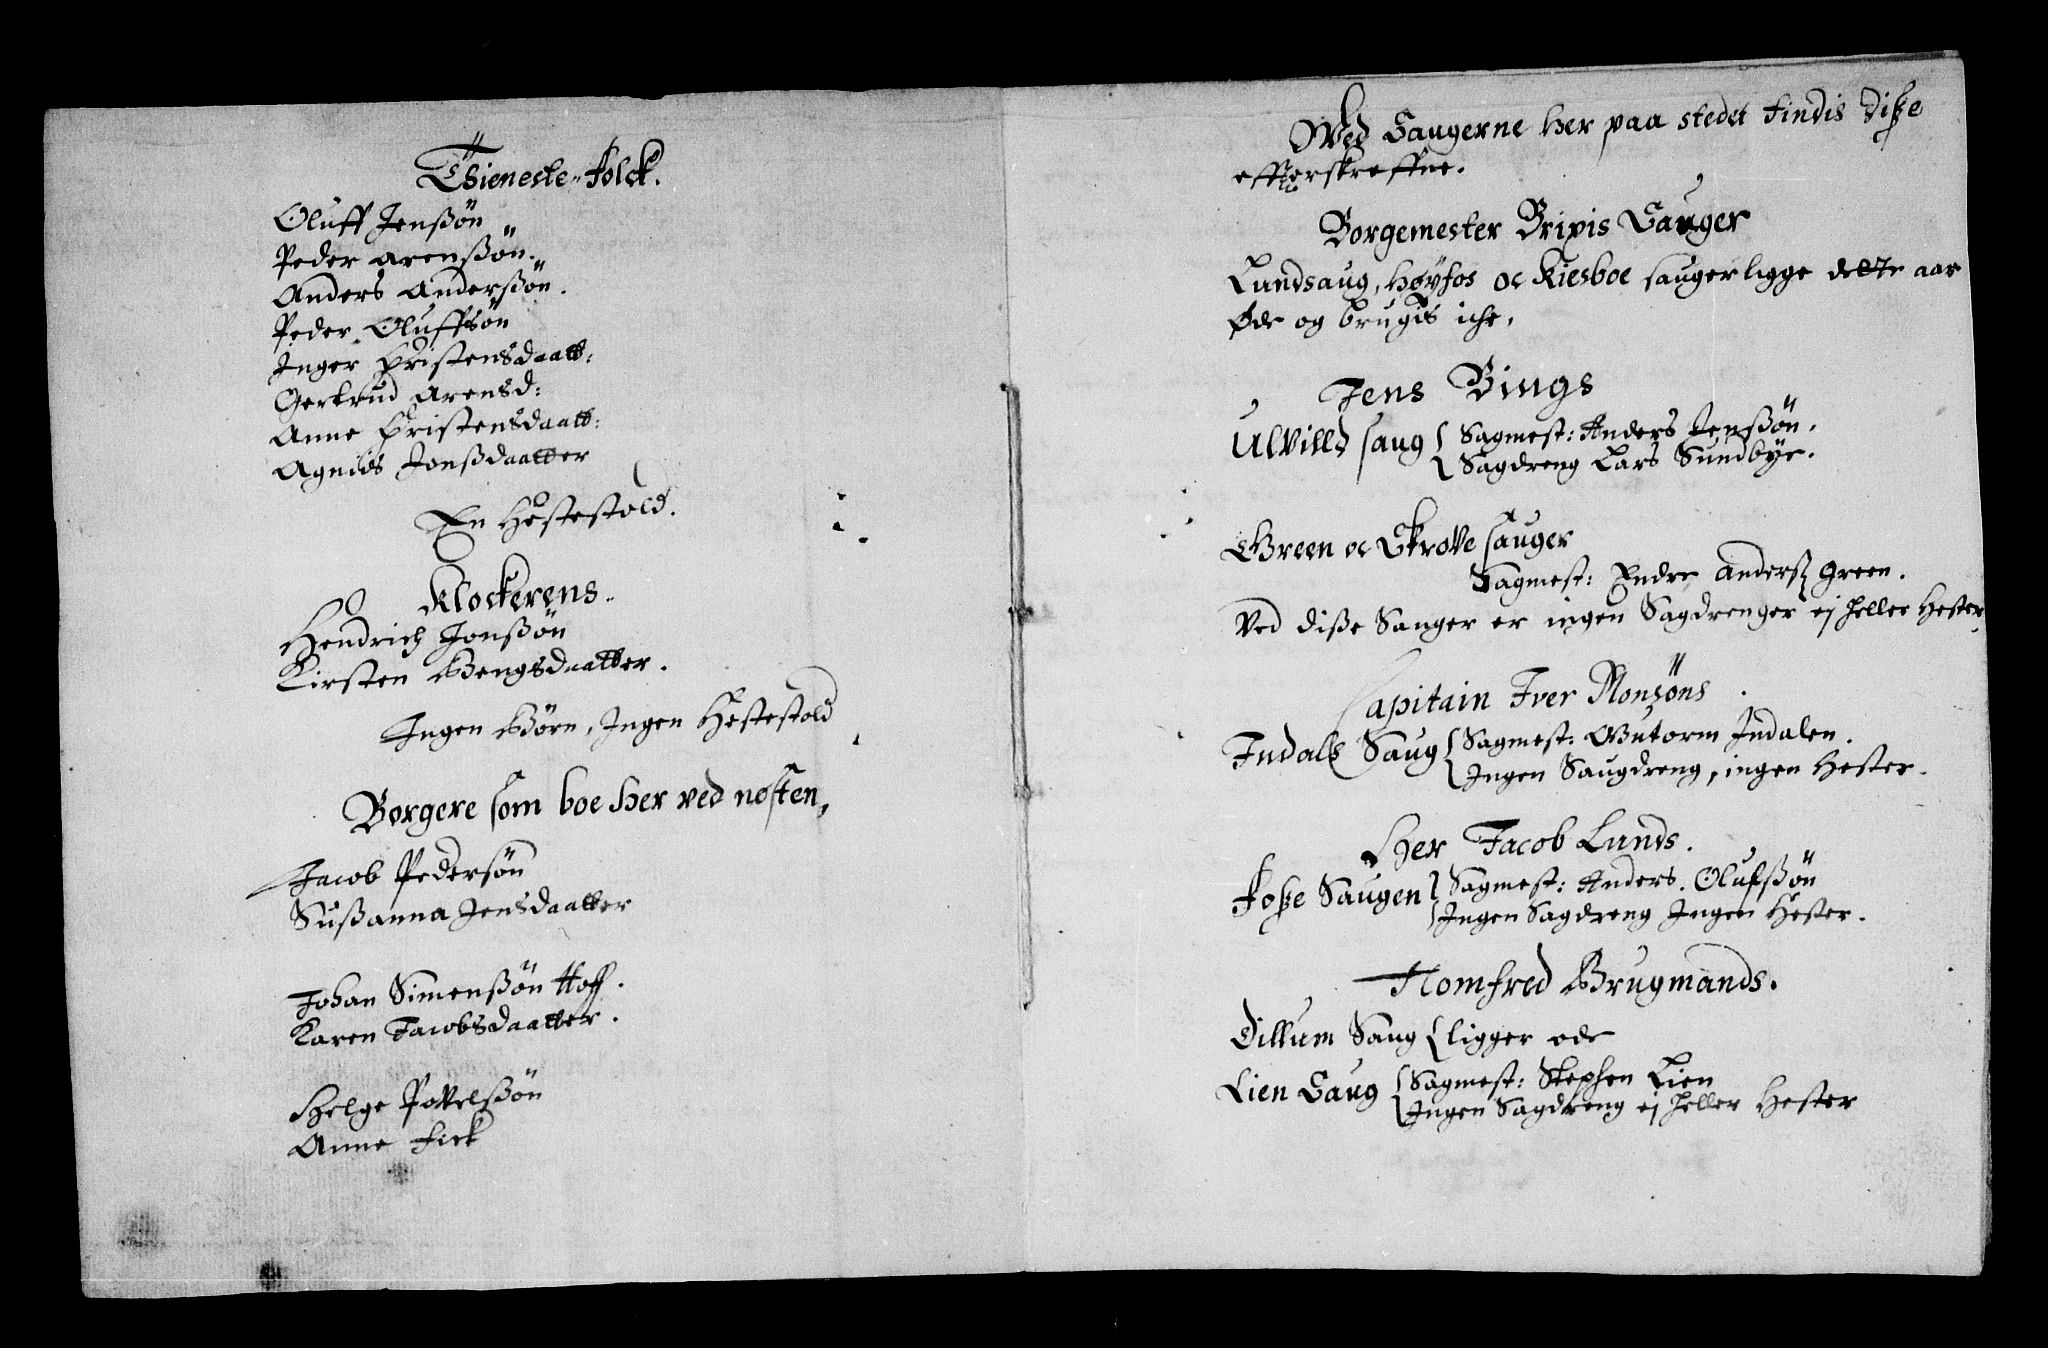 Thieneste-folck.
Oluff Jenßøn
Peder Arenßøn.
Anders Anderßøn.
Peder Oluffsøn
Inger Christensdaatt:
Gertrud Arensd:
Anne Christensdaatt:
Agnids Jonßdaatter
En Hestestold.
Klockerens.
Hendrich Jonßøn
Kirsten Bengsdaatter.
Ingen Børn, Ingen Hestestold
Borgere som boe her ved nosten,
Jacob Pedersøn
Sußanna Jensdaatter
Johan Simenßøn Hoff.
Karen Jacobsdaatter.
Helge Povelßøn
Anne Fick
Wed Saugerne her paa stedet findis diße
effterskreffne.
Borgemester Bripis Sauger
Lundsaug, Høyfos oc Kiesboe sauger ligge dette aar
øde og brugis iche.
Jens Bings
Ulvilld saug { Sagmest: Anders Jenßøn.
Sagdreng Lars Sundbye.
Green oc Skrove sauger
Sagmest: Endre Anderß Green.
Ved diße Sauger er ingen Sagdrenger ej heller Hester.
Capitain Iver Monsøns.
Indals Saug { Sagmest: Gutorm Indalen.
Ingen Saugdreng, ingen Hester.
Her Jacob Lunds.
Foße Saugen } Sagmest: Anders. Olufßøn
Ingen Sagdreng Ingen Hester.
Homfred Brugmands.
Dillum Saug { ligger øde
Lien Saug { Sagmest: Stephen Lien
Ingen Sagdreng ej heller Hester